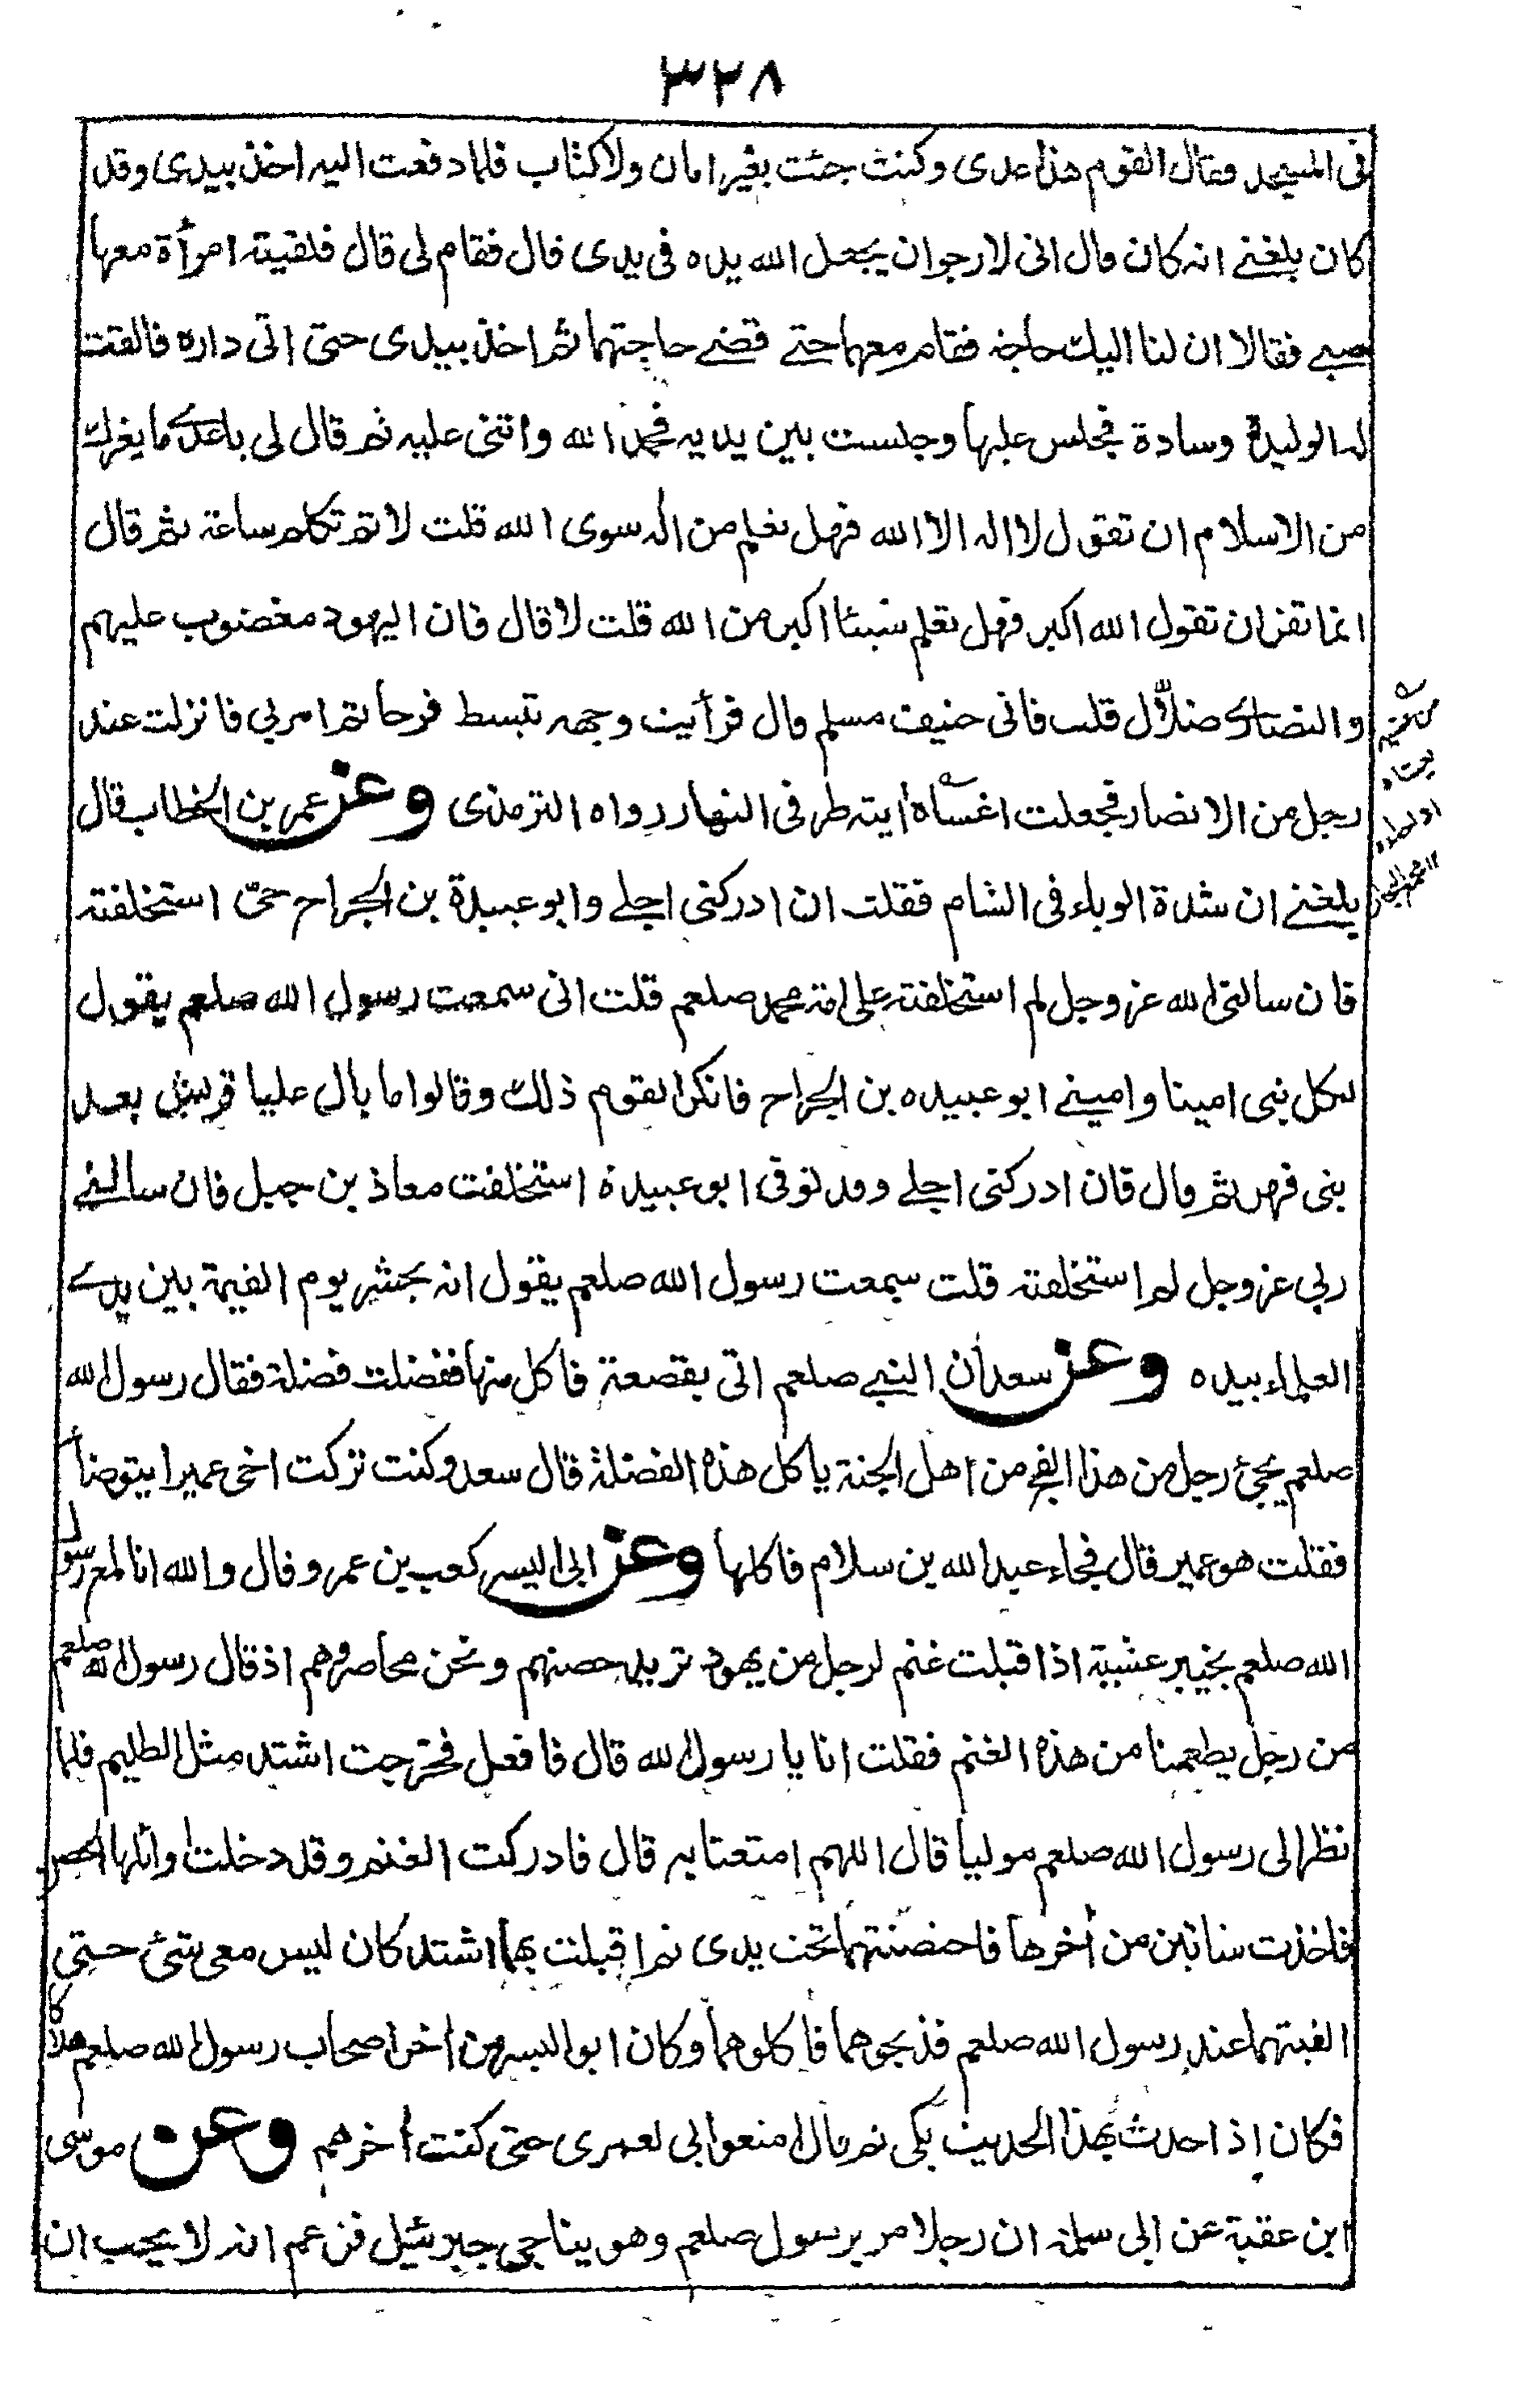 ٣٢٨
فى المسجد فقال القوم هذا عدى وكنت جئت بغير امان ولا كتاب فلما دفعت اليه اخذ بيدى وقد
كان بلغنے انه كان قال انى لارجو ان يجعل الله يده فى يدى قال فقام لى قال فلقيته امرأة معها
صبے فقالا ان لنا اليك حاجة فقام معهما حتے قضے حاجتهما ثم اخذ بيدى حتى اتى داره فالقت
له الوليدة وسادة فجلس عليها وجلست بين يديه فحمد الله واثنى عليه ثم قال لى يا عدے ما يفرك
من الاسلام ان تقول لا اله الا الله فهل تعلم من اله سوى الله قلت لا ثم تكلم ساعة ثم قال
انما تفر ان تقول الله اكبر فهل تعلم شيئا اكبر من الله قلت لا قال فان اليهود مغضوب عليهم
والنصارے ضلّال قلت فانى حنيف مسلم قال فرأيت وجهه تبسط فرحا ثم امر بى فانزلت عند
رجل من الانصار فجعلت اغشاه اٰيته طرفى النهار رواه الترمذى وعن عمر بن الخطاب قال
بلغنے ان شدة الوباء فى الشام فقلت ان ادركنى اجلے وابو عبيدة بن الجراح حىّ استخلفته
فان سالنى الله عز وجل لم استخلفته على امة محمد صلعم قلت انى سمعت رسول الله صلعم يقول
لكل نبى امينا وامينے ابو عبيده بن الجراح فانكر القوم ذلك وقالوا ما بال عليا قريش بعد
بنى فهر ثم قال فان ادركنى اجلے وقد توفى ابو عبيدة استخلفت معاذ بن جبل فان سالنے
ربى عز وجل لم استخلفته قلت سمعت رسول الله صلعم يقول انه يحشر يوم القيمة بين يدے
العلماء بيده وعن سعد ان النبے صلعم اتى بقصعة فاكل منها ففضلت فضلة فقال رسول الله
صلعم يجئ رجل من هذا الفج من اهل الجنة ياكل هذه الفضلة قال سعد وكنت تركت اخى عميرا يتوضأ
فقلت هو عمير قال فجاء عبد الله بن سلام فاكلها وعن ابى اليسر كعب بن عمرو قال والله انا لمع رسول
الله صلعم بخيبر عشية اذ اقبلت غنم لرجل من يهود تريد حصنهم ونحن محاصروهم اذ قال رسول الله صلعم
من رجل يطعمنا من هذه الغنم فقلت انا يا رسول الله قال فافعل فخرجت اشتد مثل الظليم فلما
نظر الى رسول الله صلعم موليا قال اللهم امتعنا به قال فادركت الغنم وقد دخلت اوائلها الحصن
فاخذت شاتين من اٰخرها فاحضنتهما تحت يدى ثم اقبلت بهما اشتد كان ليس معى شئ حتى
القيتهما عند رسول الله صلعم فذبحوهما فاكلوهما وكان ابو اليسر من اٰخر اصحاب رسول الله صلعم هلاكا
فكان اذا حدث بهذا الحديث بكى ثم قال امتعوا بى لعمرى حتى كنت اٰخرهم وعن موسى
ابن عقبة عن ابى سلمة ان رجلا مر برسول صلعم وهو يناجى جبرئيل فزعم انه لا يجب ان